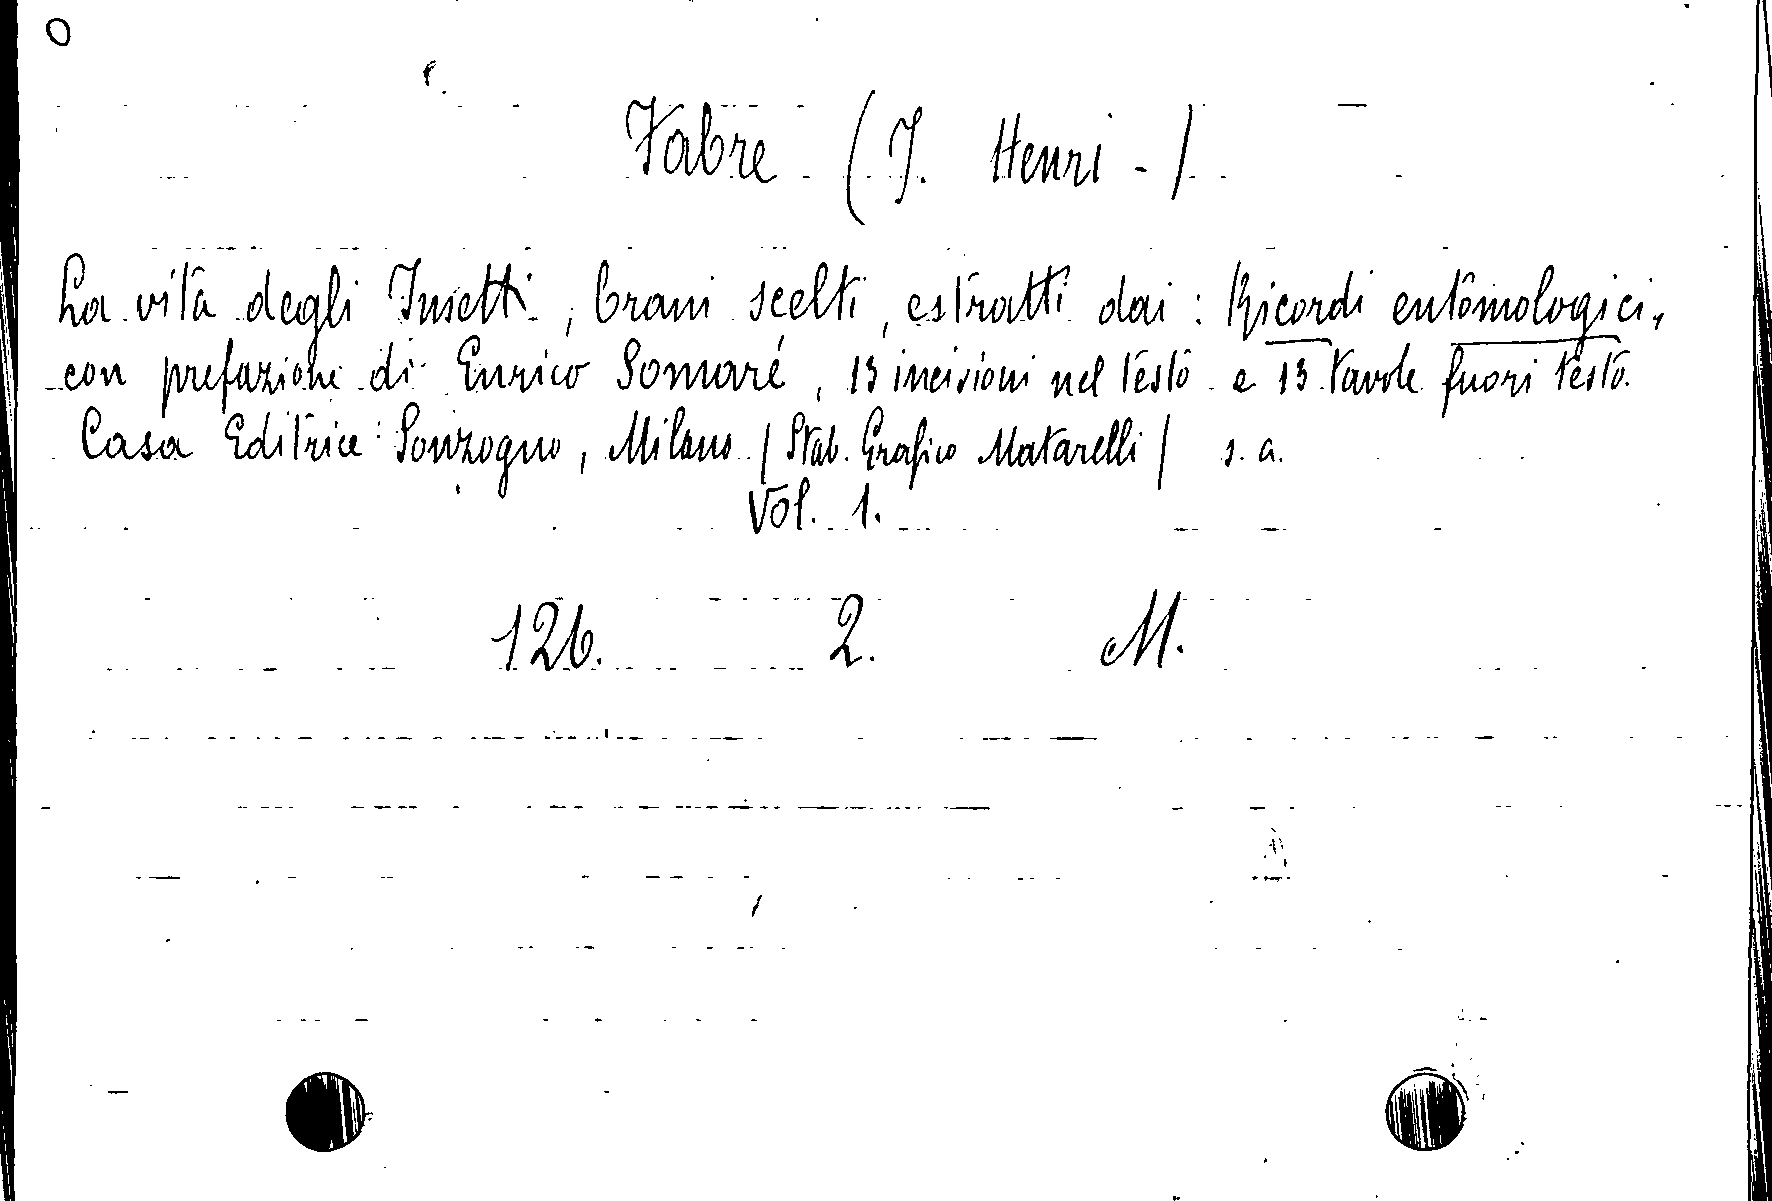 Fabre (J. Henri - )
La vita degli Insetti, brani scelti, estratti dai: Ricordi entomologici,
con prefazione di Enrico Somaré, 13 incisioni nel testo e 13 tavole fuori testo.
Casa Editrice Sonzogno, Milano (Stab. Grafico Matarelli) s. a.
Vol. 1.
126. 2. M.